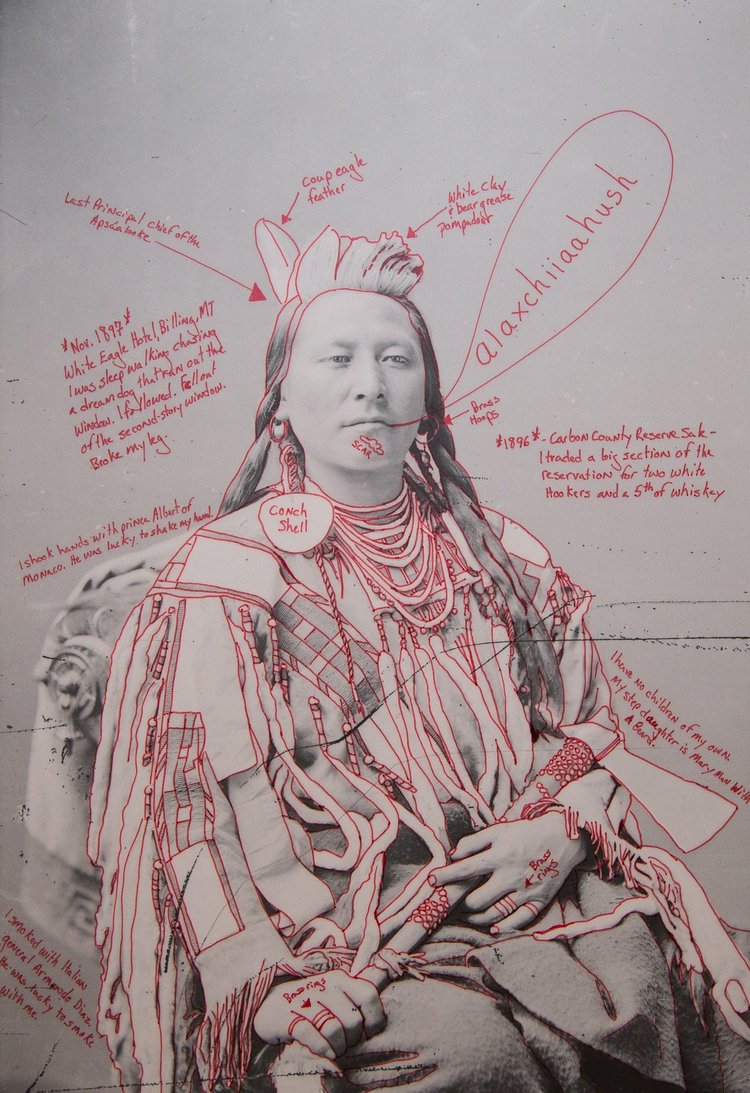 coup eagle
feather
White Clay
& bear grease
pompadour
Last Principal Chief of the
Apsáalooke
alaxchiiaahush
*Nov. 1897*
White Eagle Hotel, Billing, MT
I was sleep walking chasing
a dream dog that ran out the
window. I followed. Fell out
of the second-story window.
Broke my leg.
Brass
Hoops
SCAR
*1896* - Carbon County Reserve Sale -
I traded a big section of the
reservation for two white
Hookers and a 5th of whiskey
Conch
Shell
I shook hands with prince Albert of
Monaco. He was lucky to shake my hand.
I have no children of my own.
My step daughter is Mary Man With
A Beard.
Brass
rings
Brass rings
I smoked with Italian
general Armando Diaz.
He was lucky to smoke
with me.